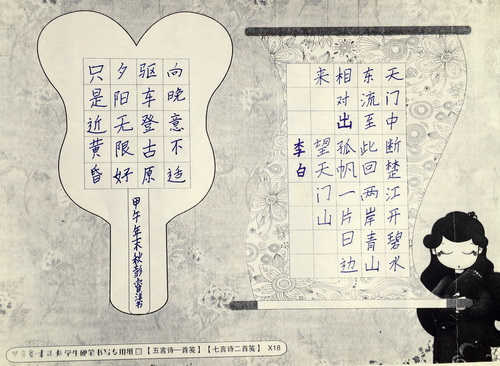 天门中断楚江开碧水
东流至此回两岸青山
相对出孤帆一片日边
来 望天门山
李白
向晚意不适
驱车登古原
夕阳无限好
只是近黄昏
甲午年末秋彭书
【五言诗一首笺】【七言诗二首笺】 X18